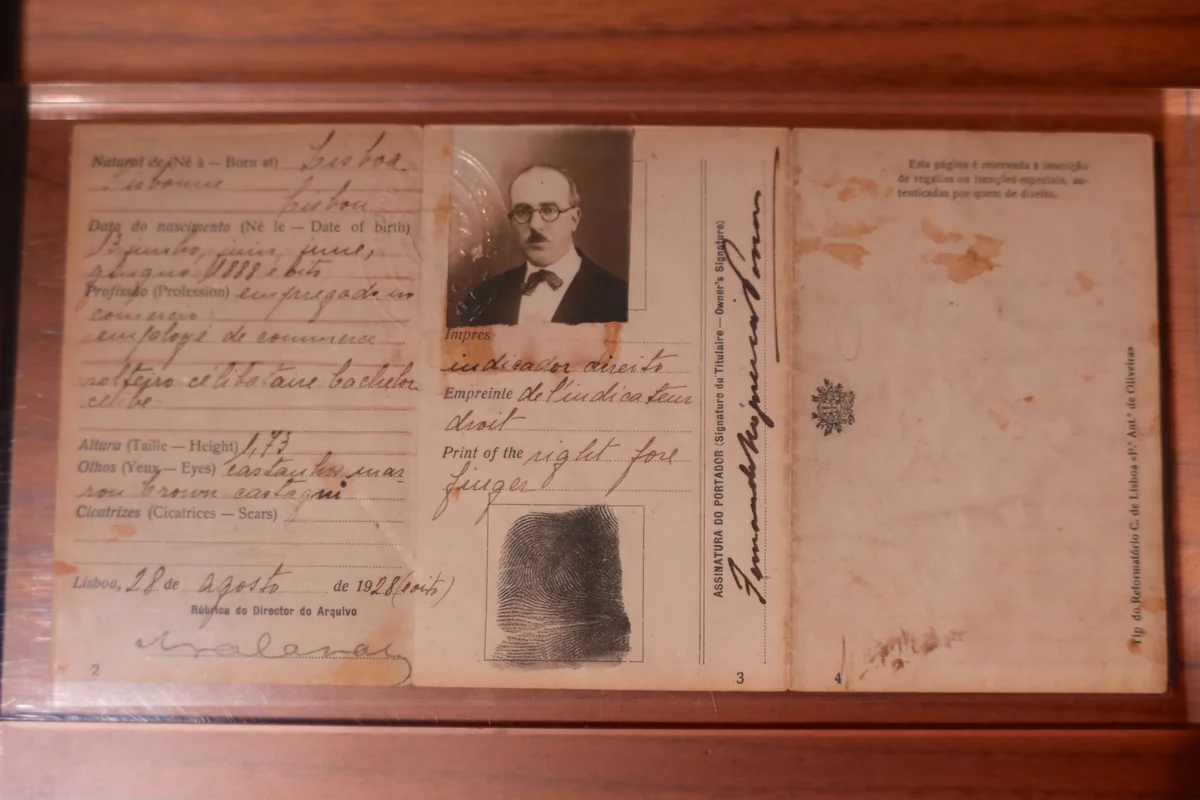 Natural de (Né à — Born at) Lisboa,
Lisbonne
Lisbon
Data do nascimento (Né le — Date of birth)
13 junho, juin, june,
giugno 1888 e oito
Profissão (Profession) empregado no
comercio
employé de commerce
solteiro célibataire bachelor
celibe
Altura (Taille — Height) 1,73
Olhos (Yeux — Eyes) castanhos mar
ron brown castagni
Cicatrizes (Cicatrices — Scars)
Lisboa, 28 de agosto de 1928 (oito)
Rúbrica do Director do Arquivo
2
Impres
indicador direito
Empreinte de l'indicateur
droit
Print of the right fore
finger
ASSINATURA DO PORTADOR (Signature du Titulaire — Owner's Signature)
Fernando Nogueira Pessoa
3
Esta página é reservada à inscrição
de regalias ou isenções especiais, au-
tenticadas por quem de direito.
4
Tip do Reformatório C. de Lisboa «P.e Ant.º de Oliveira»